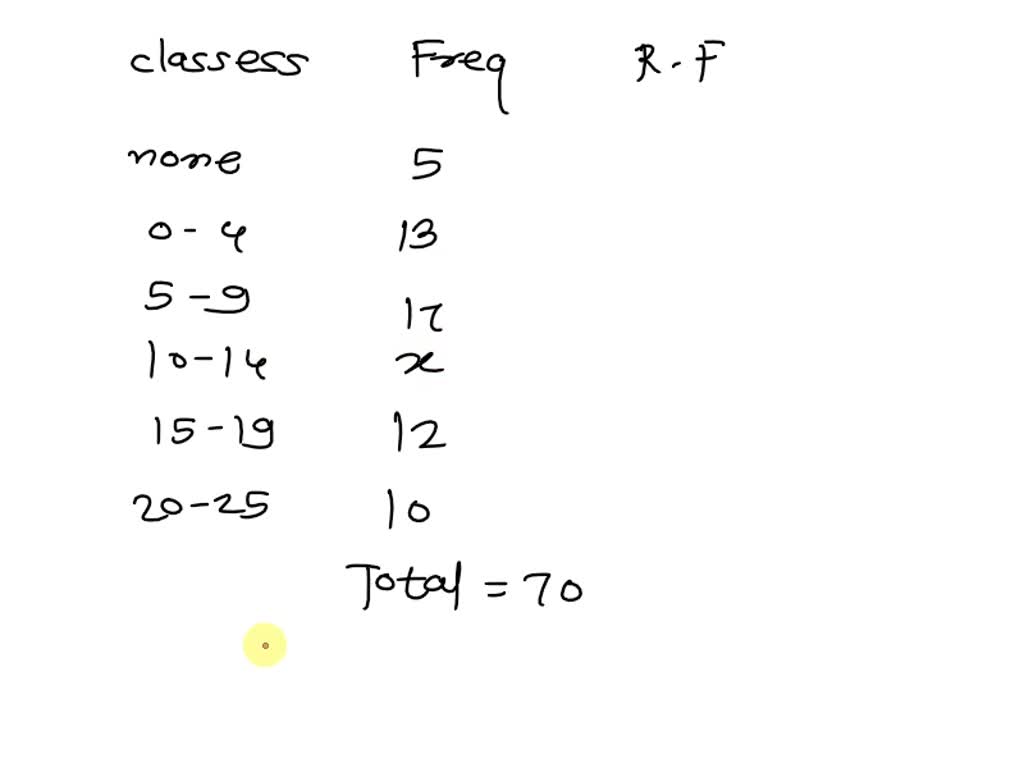 classess Freq R.F
none 5
0-4 13
5-9 17
10-14 x
15-19 12
20-25 10
Total = 70